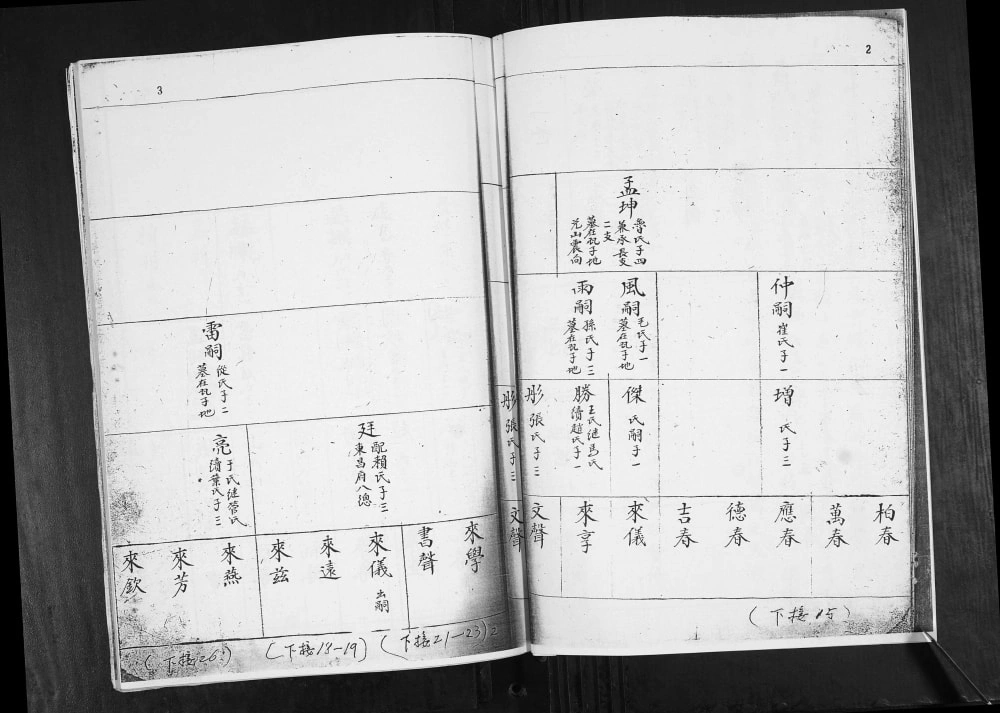 2
孟坤
魯氏子四
兼承長支
二支
墓在乩子地
艮山震向
仲嗣
崔氏子一
風嗣
毛氏子一
墓在乩子地
雨嗣
孫氏子三
墓在乩子地
增
氏子三
傑
氏嗣子一
勝
王氏継馬氏
續趙氏子一
彤
張氏子三
柏春
萬春
應春
德春
吉春
來儀
來享
文聲
(下接15)
3
雷嗣
從氏子二
墓在乩子地
彤
張氏子三
廷
配賴氏子三
東昌府八總
亮
于氏継管氏
續葉氏子三
文聲
來學
書聲
來儀
出嗣
來遠
來茲
來燕
來芳
來欽
2
(下接21-23)
(下接18-19)
(下接26)